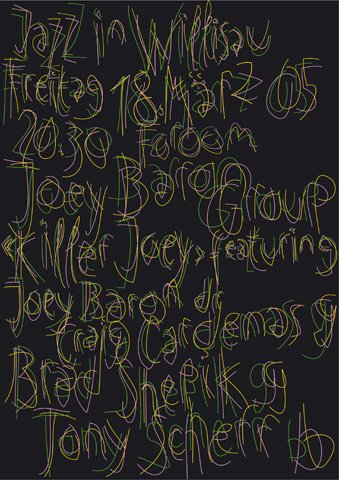 Jazz in Willisau
Freitag 18. März 05
20.30 Foroom
Joey Baron Group
«Killer Joey» featuring
Joey Baron dr
Craig Cardiemas g
Brad Shepik g
Tony Scherr b